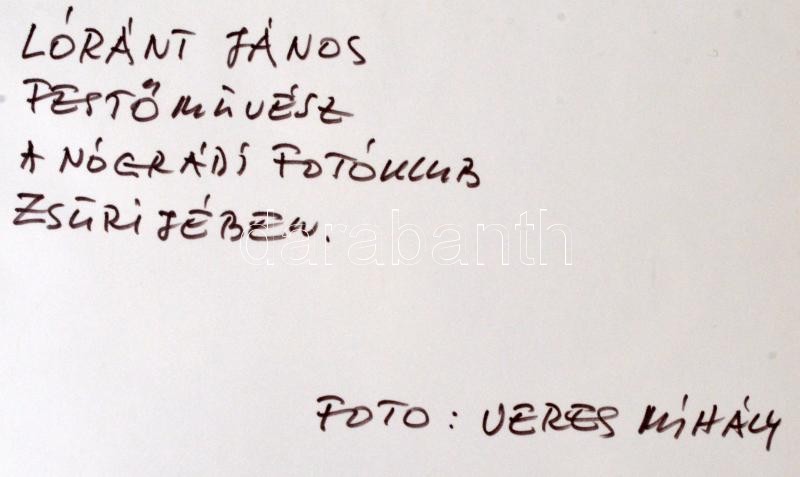 LÓRÁNT JÁNOS
FESTŐMŰVÉSZ
A NÓGRÁDI FOTÓKLUB
ZSŰRIJÉBEN.
darabanth
FOTO: VERES MIHÁLY